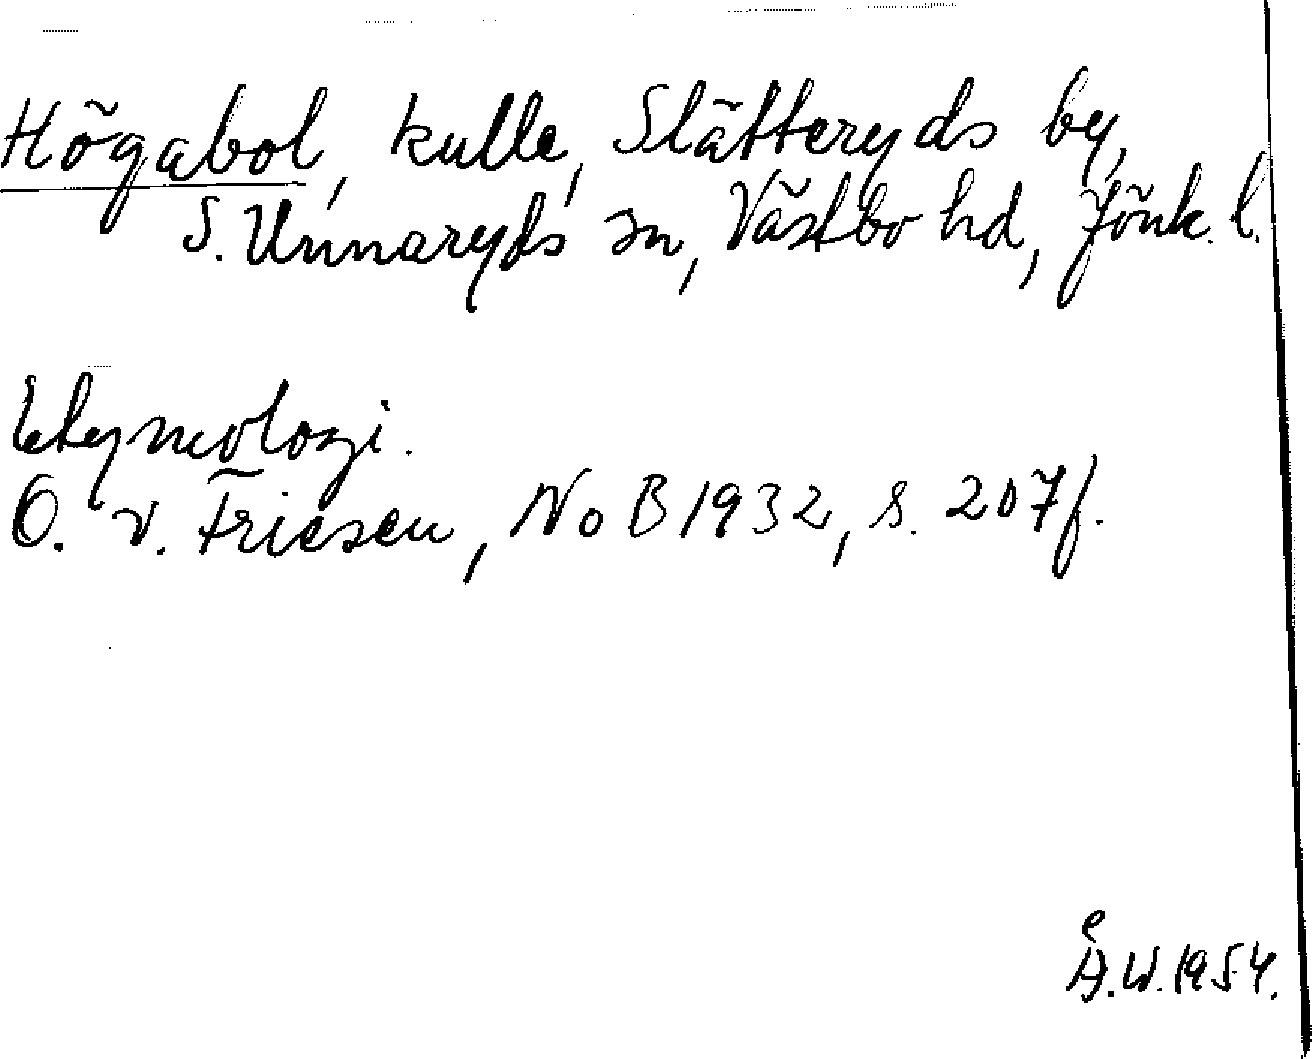 Högabol, kulle, Slätteryds by,
S. Unnaryds sn, Västbo hd, Jönk. l.
Etymologi.
O. v. Friesen, NoB 1932, s. 207 f.
Å.W. 1954.